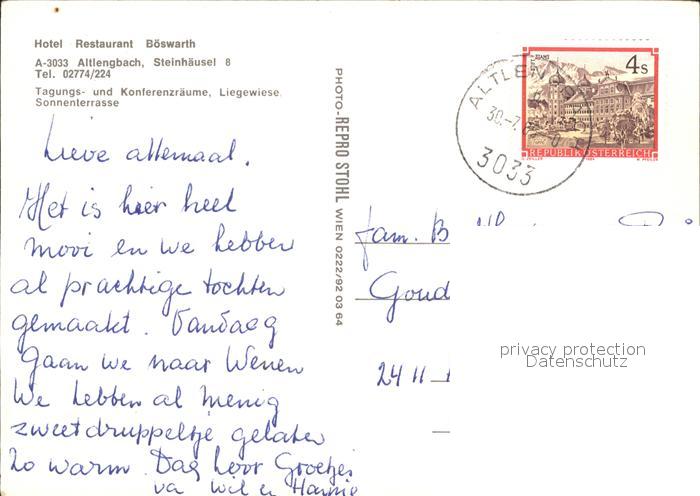 Hotel Restaurant Böswarth
A-3033 Altlengbach, Steinhäusel 8
Tel. 02774/224
Tagungs- und Konferenzräume, Liegewiese
Sonnenterrasse
Lieve allemaal,
Het is hier heel
mooi en we hebben
al prachtige tochten
gemaakt. Vandaag
gaan we naar Wenen
We hebben al menig
zweetdruppeltje gelaten
Zo warm. Dag hoor Groetjes
va Wil en Hannie
PHOTO-REPRO STOHL WIEN 0222/92 03 64
4s
REPUBLIK ÖSTERREICH
ALTLENG
30.-7.
3033
fam. B
Goud
24 11
privacy protection
Datenschutz